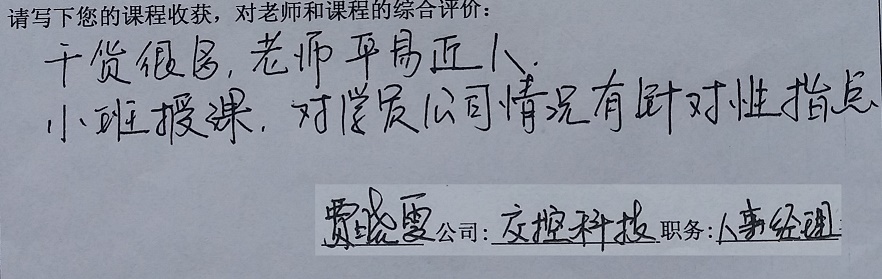 请写下您的课程收获，对老师和课程的综合评价：
干货很多，老师平易近人.
小班授课. 对学员公司情况有针对性指点
贾晓雯公司：交控科技 职务：人事经理